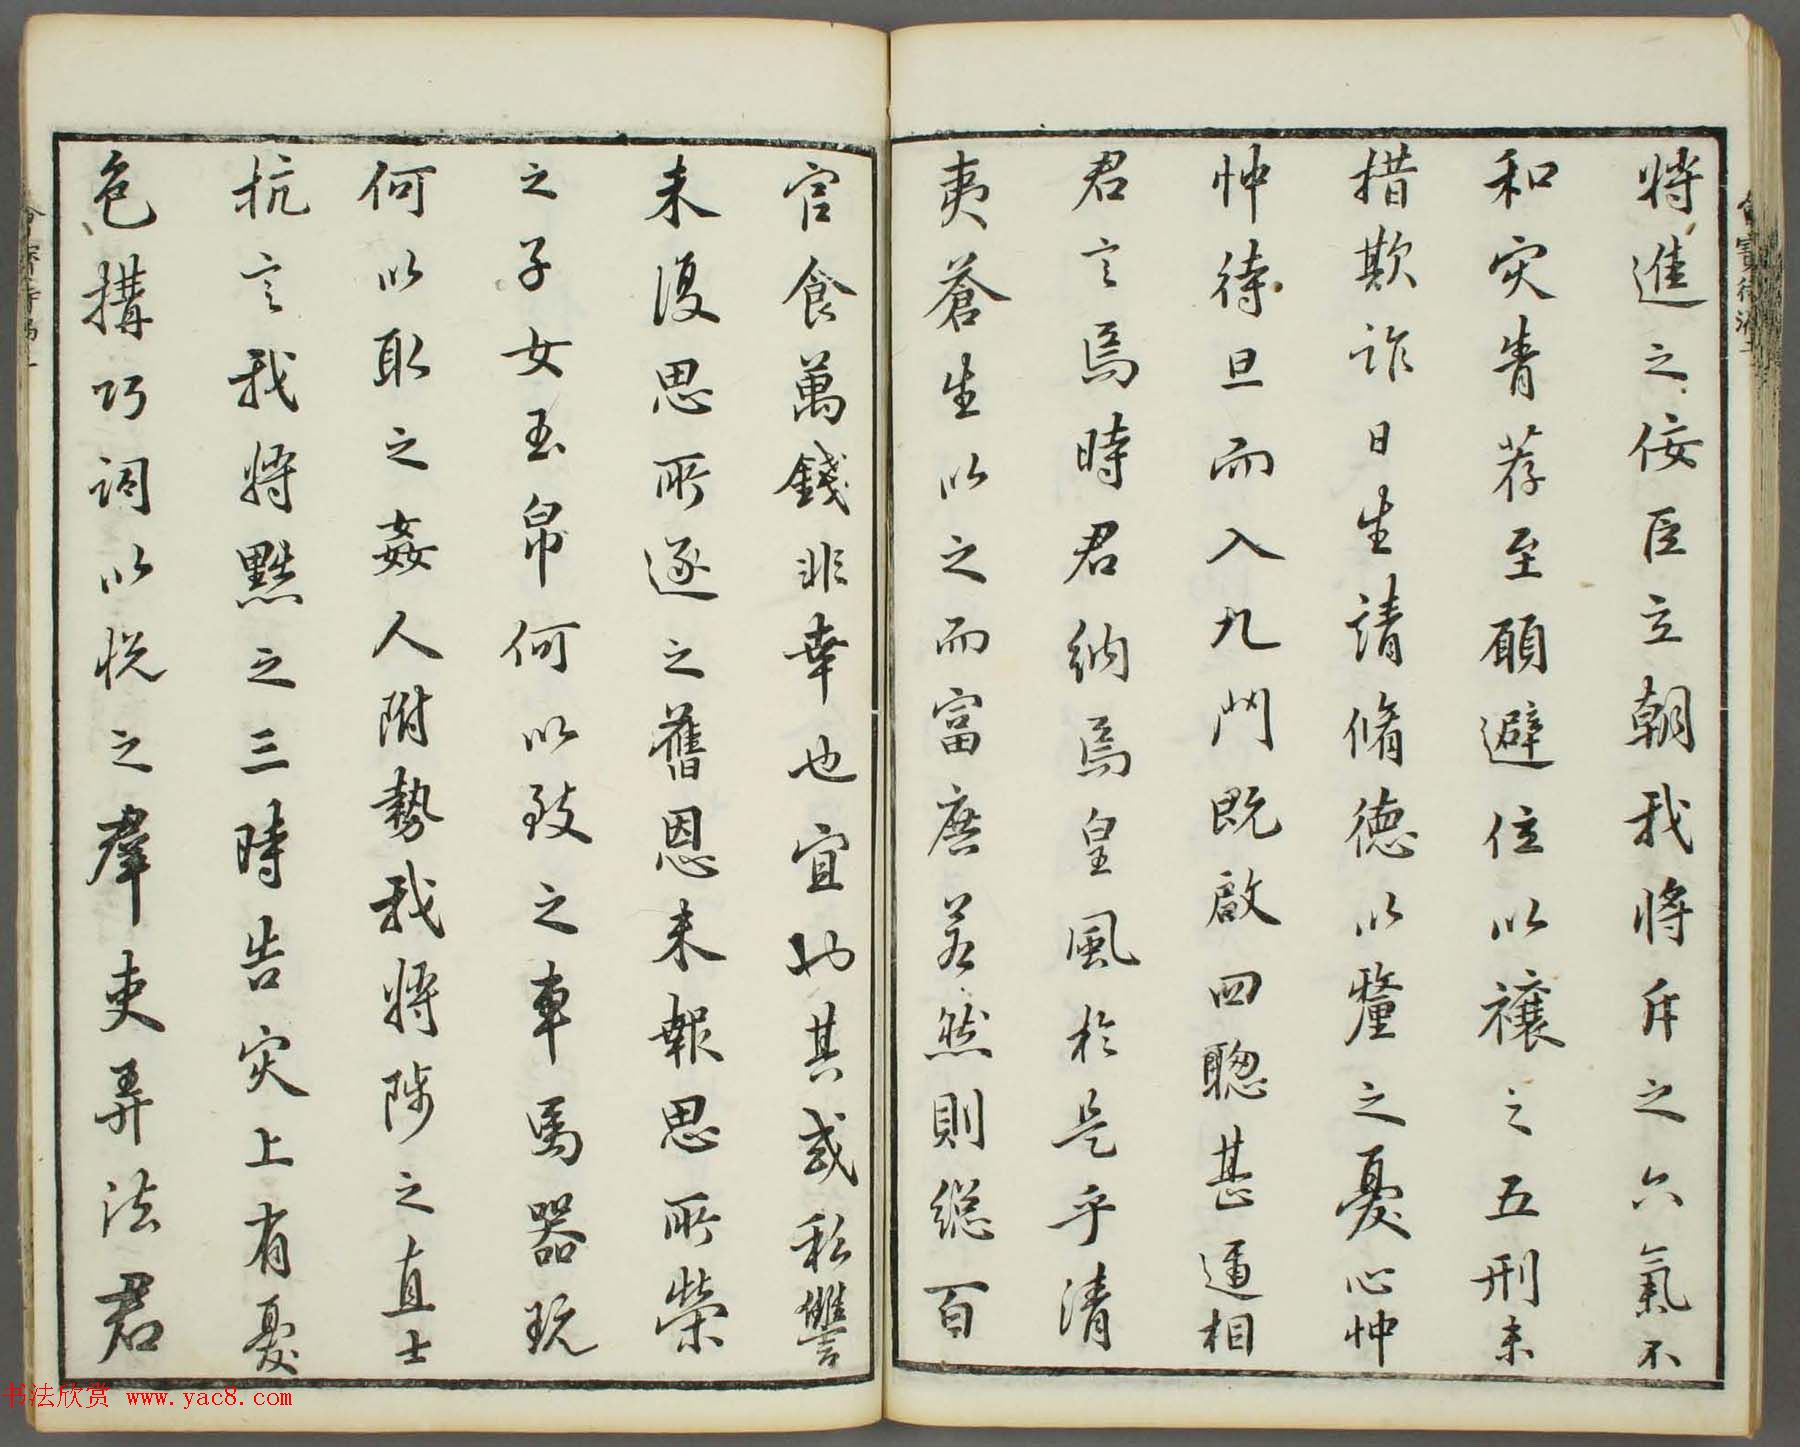 將進之佞臣立朝我將斥之六氣不
和灾眚荐至願避位以禳之五刑未
措欺詐日生請脩德以釐之憂心忡
忡待旦而入九門既啟四聰甚邇相
君言焉時君納焉皇風於是乎清
夷蒼生以之而富庶若然則總百
官食萬錢非幸也宜也其或私讐
未復思所逐之舊恩未報思所榮
之子女玉帛何以致之車馬器玩
何以取之姦人附勢我將陟之直士
抗言我將黜之三時告灾上有憂
色搆巧詞以悅之羣吏弄法君
书法欣赏 www.yac8.com